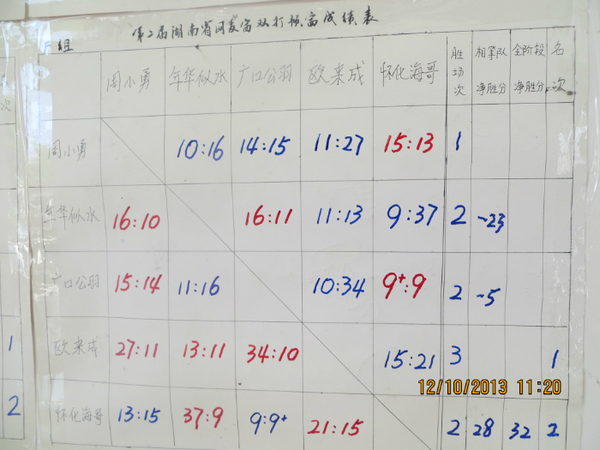 第二届湖南省网友首双打预赛成绩表
组
周小勇 年华似水 广口公羽 欧来成 怀化海哥 胜场次 相掌队净胜分 全阶段净胜分 名次
次
周小勇 10:16 14:15 11:27 15:13 1
年华似水 16:10 16:11 11:13 9:37 2 -23
广口公羽 15:14 11:16 10:34 9+:9 2 -5
1 欧来成 27:11 13:11 34:10 15:21 3 1
12/10/2013 11:20
2 怀化海哥 13:15 37:9 9:9+ 21:15 2 28 32 2